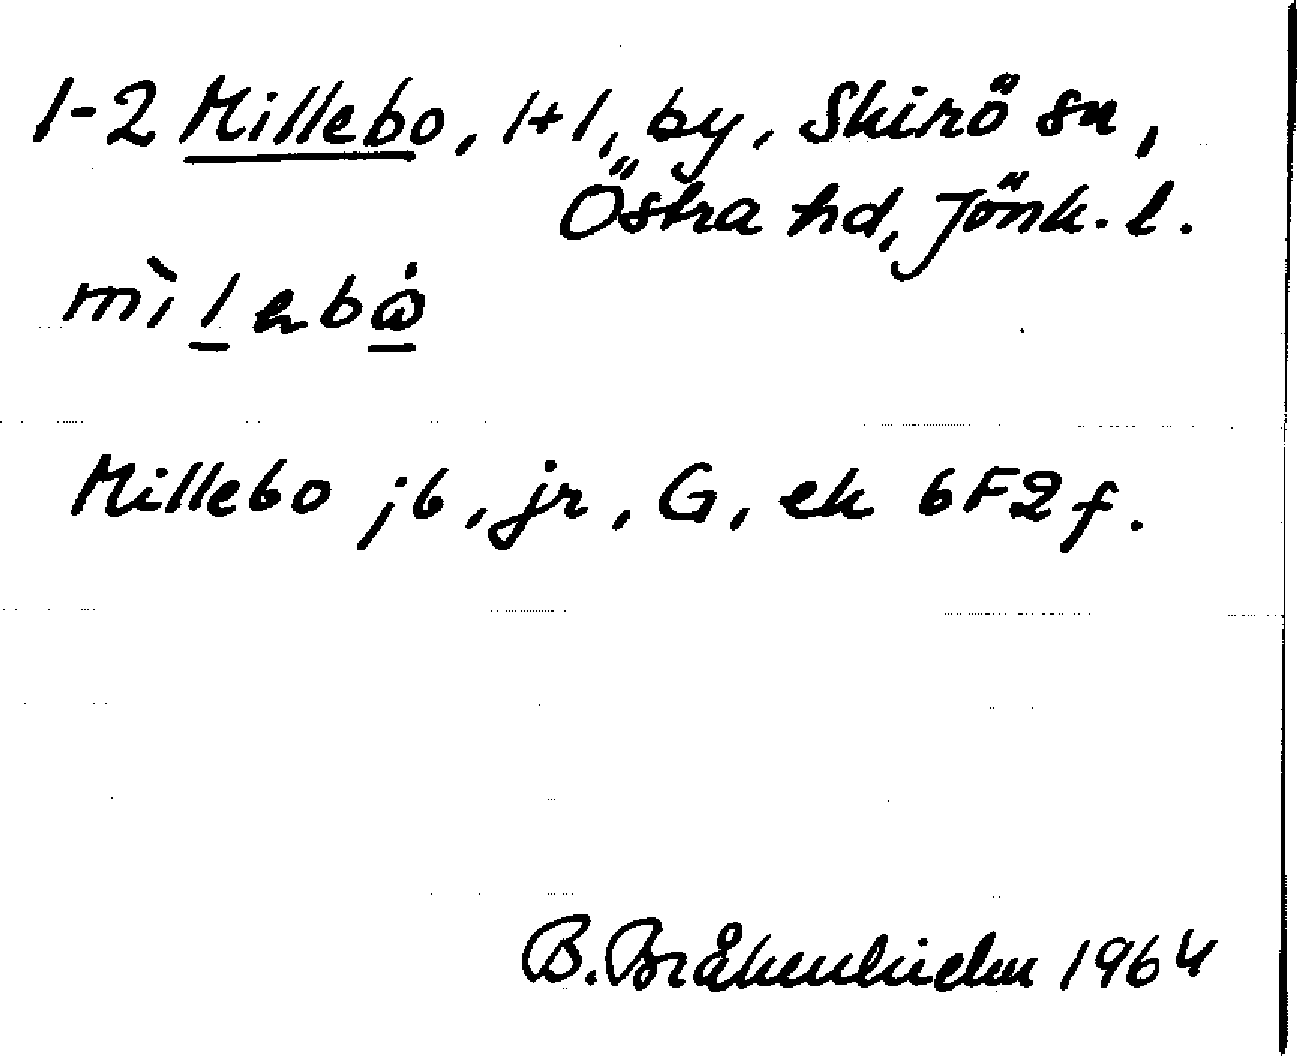 1-2 Millebo, 1+1, by, Skirö sn,
Östra hd, Jönk. l.
Millebo jb, jr, G, ek 6F2f.
B. Bråkenhielm 1964